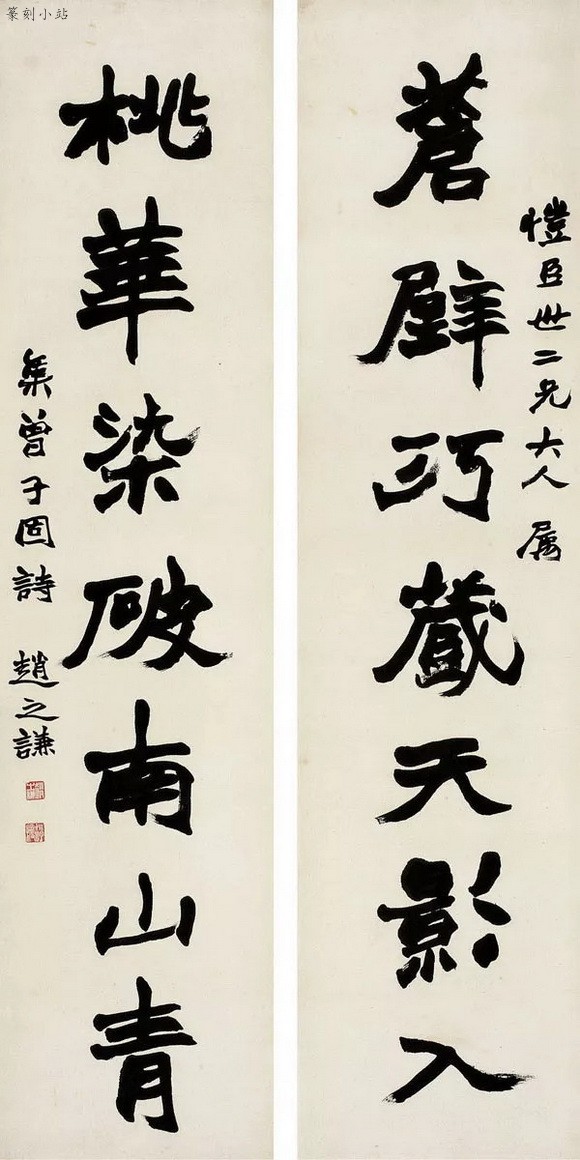 篆刻小站
愷臣世二兄大人属
蒼壁巧藏天影入
桃華染破南山青
集曾子固詩 趙之謙